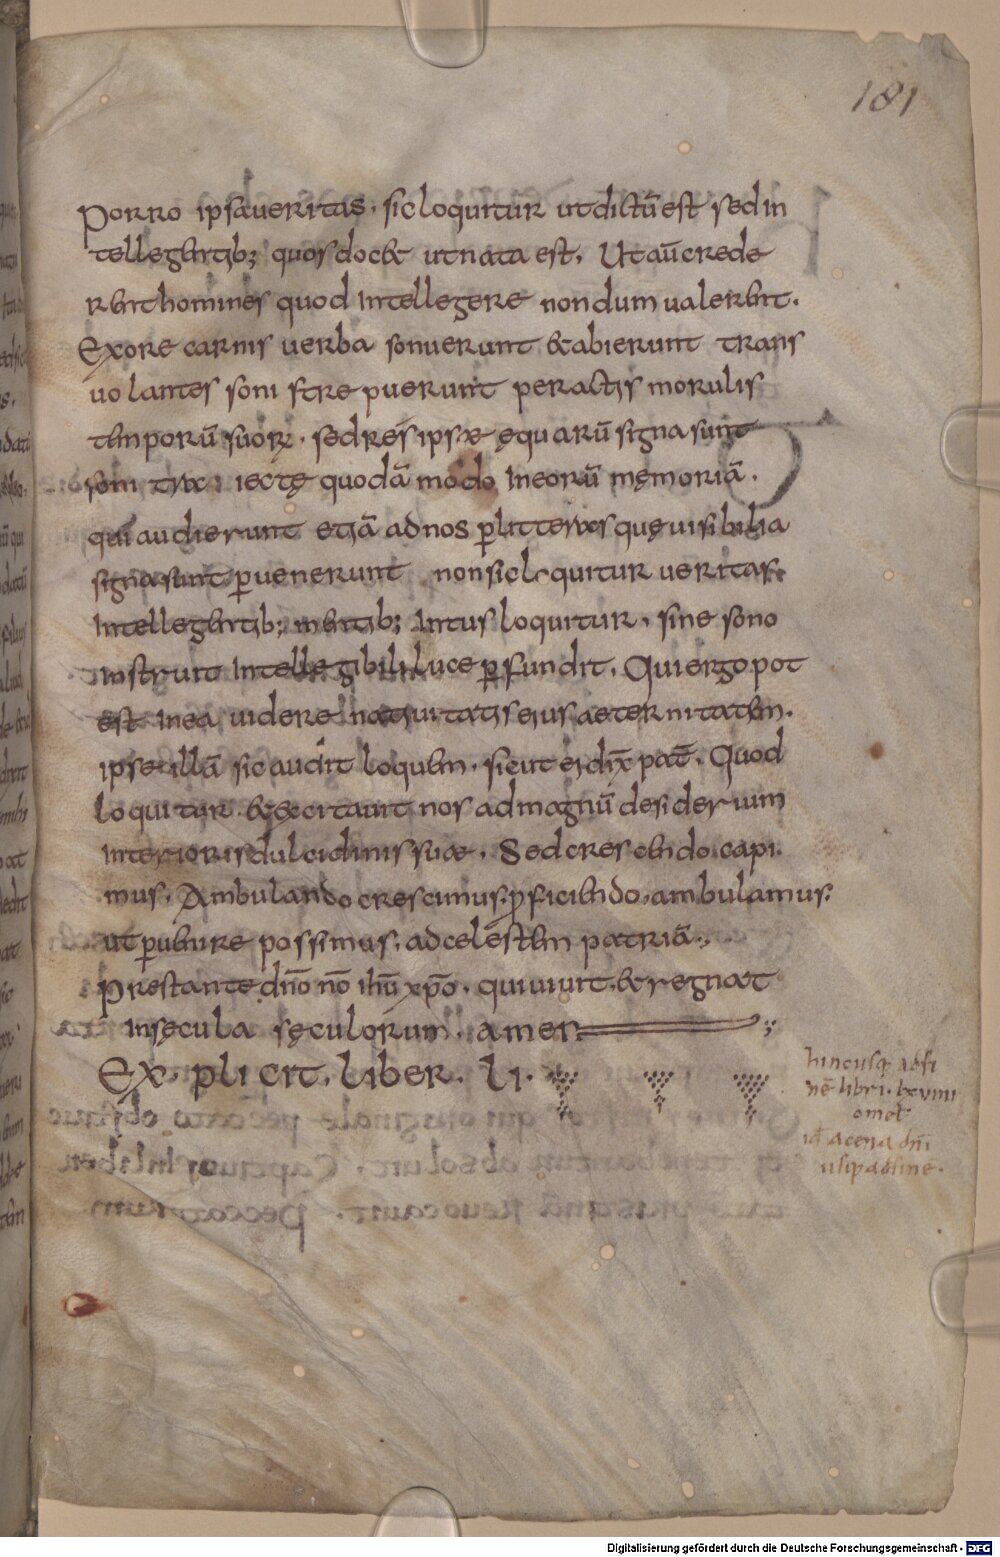 181
Porro ipsa ueritas · sic loquitur ut dictū est sed in
tellegentib; quos docet ut nata est, Ut aū crede
rent homines quod intellegere nondum ualerent.
Ex ore carnis uerba sonuerunt & abierunt trans
uolantes soni strepuerunt peractis morulis
temporū suorꝝ · sed res ipsæ ęquarū signa sunt
soni traiectę quodā modo in eorū męmoriā .
qui audierunt etiā ad nos plitteras quę uisibilia
signa sunt puenerunt non sic loquitur ueritas
intellegentib; mentib; intus loquitur · sine sono
instruit intellegibili luce pfundit. Qui ergo pot
est in ea uidere natiuitatis eius aeternitatem.
ipse illā sic audit loquem · sicut ei dix̄ pat̄. Quod
loquitur · & excitauit nos ad magnū desiderium
interioris dulcidinis suæ. Sed crescendo capi
mus. Ambulando crescimus. pficiendo. ambulamus.
ut puenire possimus. ad celestem patriā.
Prestante dn̄o nō ih̄ū xp̄o. qui uiuit. & regnat
in sęcula sęculorum. amen
Explicit. liber. li.
hincusq; adfi
nē libri · lxuiiii
omet̄
id̄ a cena dn̄i
usq; ad fine.
Digitalisierung gefördert durch die Deutsche Forschungsgemeinschaft - DFG